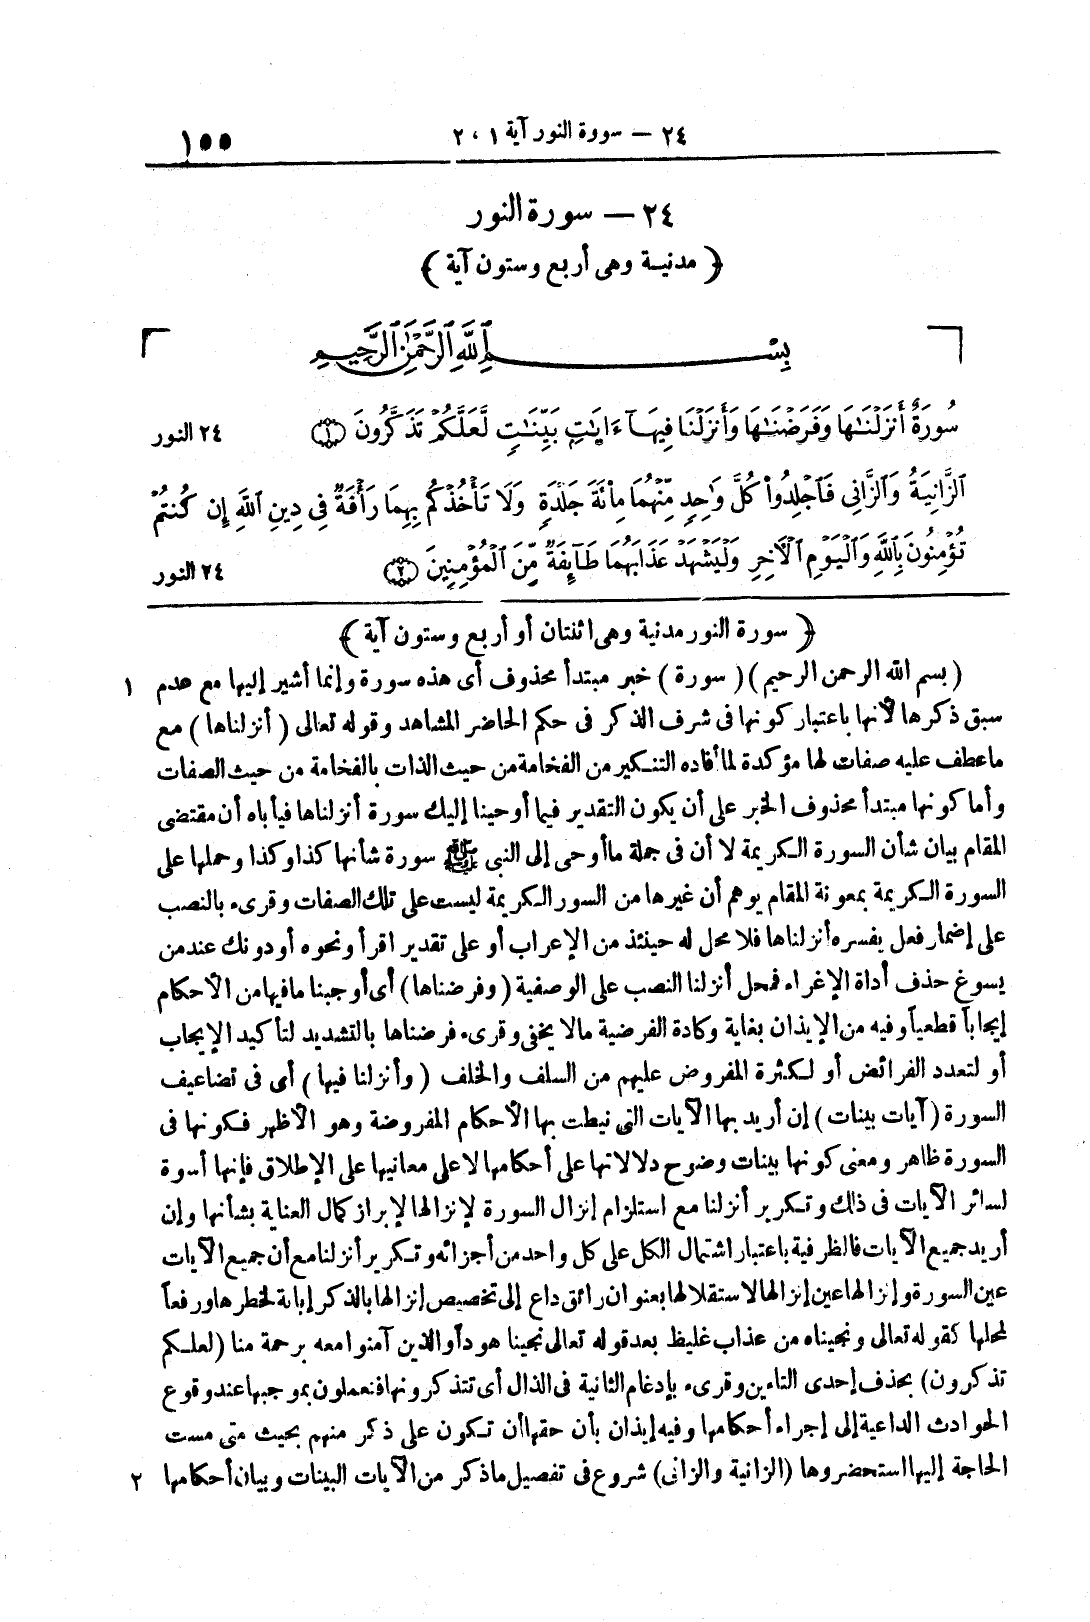 ٢٤ — سورة النور آية ١ ، ٢
١٥٥
٢٤ — سورة النور
﴿ مدنية وهى أربع وستون آية ﴾
بِسْمِ ٱللَّهِ ٱلرَّحْمَٰنِ ٱلرَّحِيمِ
سُورَةٌ أَنزَلْنَٰهَا وَفَرَضْنَٰهَا وَأَنزَلْنَا فِيهَآ ءَايَٰتٍۭ بَيِّنَٰتٍ لَّعَلَّكُمْ تَذَكَّرُونَ ١ ٢٤ النور
ٱلزَّانِيَةُ وَٱلزَّانِى فَٱجْلِدُوا۟ كُلَّ وَٰحِدٍ مِّنْهُمَا مِا۟ئَةَ جَلْدَةٍ وَلَا تَأْخُذْكُم بِهِمَا رَأْفَةٌ فِى دِينِ ٱللَّهِ إِن كُنتُمْ
تُؤْمِنُونَ بِٱللَّهِ وَٱلْيَوْمِ ٱلْءَاخِرِ وَلْيَشْهَدْ عَذَابَهُمَا طَآئِفَةٌ مِّنَ ٱلْمُؤْمِنِينَ ٢ ٢٤ النور
﴿ سورة النور مدنية وهى اثنتان أو أربع وستون آية ﴾
( بسم الله الرحمن الرحيم ) ( سورة ) خبر مبتدأ محذوف أى هذه سورة وإنما أشير إليها مع عدم ١
سبق ذكرها لأنها باعتبار كونها فى شرف الذكر فى حكم الحاضر المشاهد وقوله تعالى ( أنزلناها ) مع
ماعطف عليه صفات لها مؤكدة لما أفاده التنكير من الفخامة من حيث الذات بالفخامة من حيث الصفات
وأما كونها مبتدأ محذوف الخبر على أن يكون التقدير فيما أوحينا إليك سورة أنزلناها فيأباه أن مقتضى
المقام بيان شأن السورة الكريمة لا أن فى جملة ماأوحى إلى النبى ﷺ سورة شأنها كذا وكذا وحملها على
السورة الكريمة بمعونة المقام يوهم أن غيرها من السور الكريمة ليست على تلك الصفات وقرىء بالنصب
على إضمار فعل يفسره أنزلناها فلا محل له حينئذ من الإعراب أو على تقدير اقرأ ونحوه أو دونك عند من
يسوغ حذف أداة الإغراء فمحل أنزلنا النصب على الوصفية ( وفرضناها ) أى أوجبنا مافيها من الأحكام
إيجاباً قطعياً وفيه من الإيذان بغاية وكادة الفرضية مالا يخفى وقرىء فرضناها بالتشديد لتأكيد الإيجاب
أو لتعدد الفرائض أو لكثرة المفروض عليهم من السلف والخلف ( وأنزلنا فيها ) أى فى تضاعيف
السورة ( آيات بينات ) إن أريد بها الآيات التى نيطت بها الأحكام المفروضة وهو الأظهر فكونها فى
السورة ظاهر ومعنى كونها بينات وضوح دلالاتها على أحكامها لا على معانيها على الإطلاق فإنها أسوة
لسائر الآيات فى ذلك وتكرير أنزلنا مع استلزام إنزال السورة لإنزالها لإبراز كمال العناية بشأنها وإن
أريد جميع الآيات فالظرفية باعتبار اشتمال الكل على كل واحد من أجزائه وتكرير أنزلنا مع أن جميع الآيات
عين السورة وإنزالها عين إنزالها لاستقلالها بعنوان رائق داع إلى تخصيص إنزالها بالذكر إبانة لخطرها ورفعاً
لمحلها كقوله تعالى ونجيناه من عذاب غليظ بعد قوله تعالى نجينا هوداً والذين آمنوا معه برحمة منا ( لعلكم
تذكرون ) بحذف إحدى التاءين وقرىء بإدغام الثانية فى الذال أى تتذكرونها فتعملون بموجبها عند وقوع
الحوادث الداعية إلى إجراء أحكامها وفيه إيذان بأن حقها أن تكون على ذكر منهم بحيث متى مست
الحاجة إليها استحضروها ( الزانية والزانى ) شروع فى تفصيل ماذكر من الآيات البينات وبيان أحكامها ٢